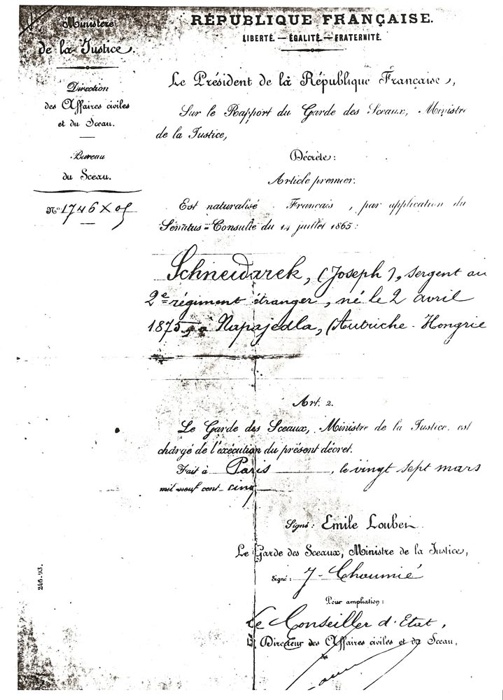 Ministère
de la Justice.
Direction
des Affaires civiles
et du Sceau.
Bureau
du Sceau.
No 1746 X 05
RÉPUBLIQUE FRANÇAISE.
LIBERTÉ. — ÉGALITÉ. — FRATERNITÉ.
Le Président de la République Française,
Sur le Rapport du Garde des Sceaux, Ministre
de la Justice,
Décrète:
Article premier.
Est naturalisé Français, par application du
Sénatus-Consulte du 14 juillet 1865:
Schneidarek, (Joseph), sergent au
2e régiment étranger, né le 2 avril
1875, à Napajedla, (Autriche-Hongrie
Art. 2.
Le Garde des Sceaux, Ministre de la Justice est
chargé de l'exécution du présent décret.
Fait à Paris, le vingt sept mars
mil neuf cent cinq
Signé: Emile Loubet
Le Garde des Sceaux, Ministre de la Justice,
Signé: J. Chaumié
Pour ampliation:
Le Conseiller d'Etat,
Directeur des Affaires civiles et du Sceau,